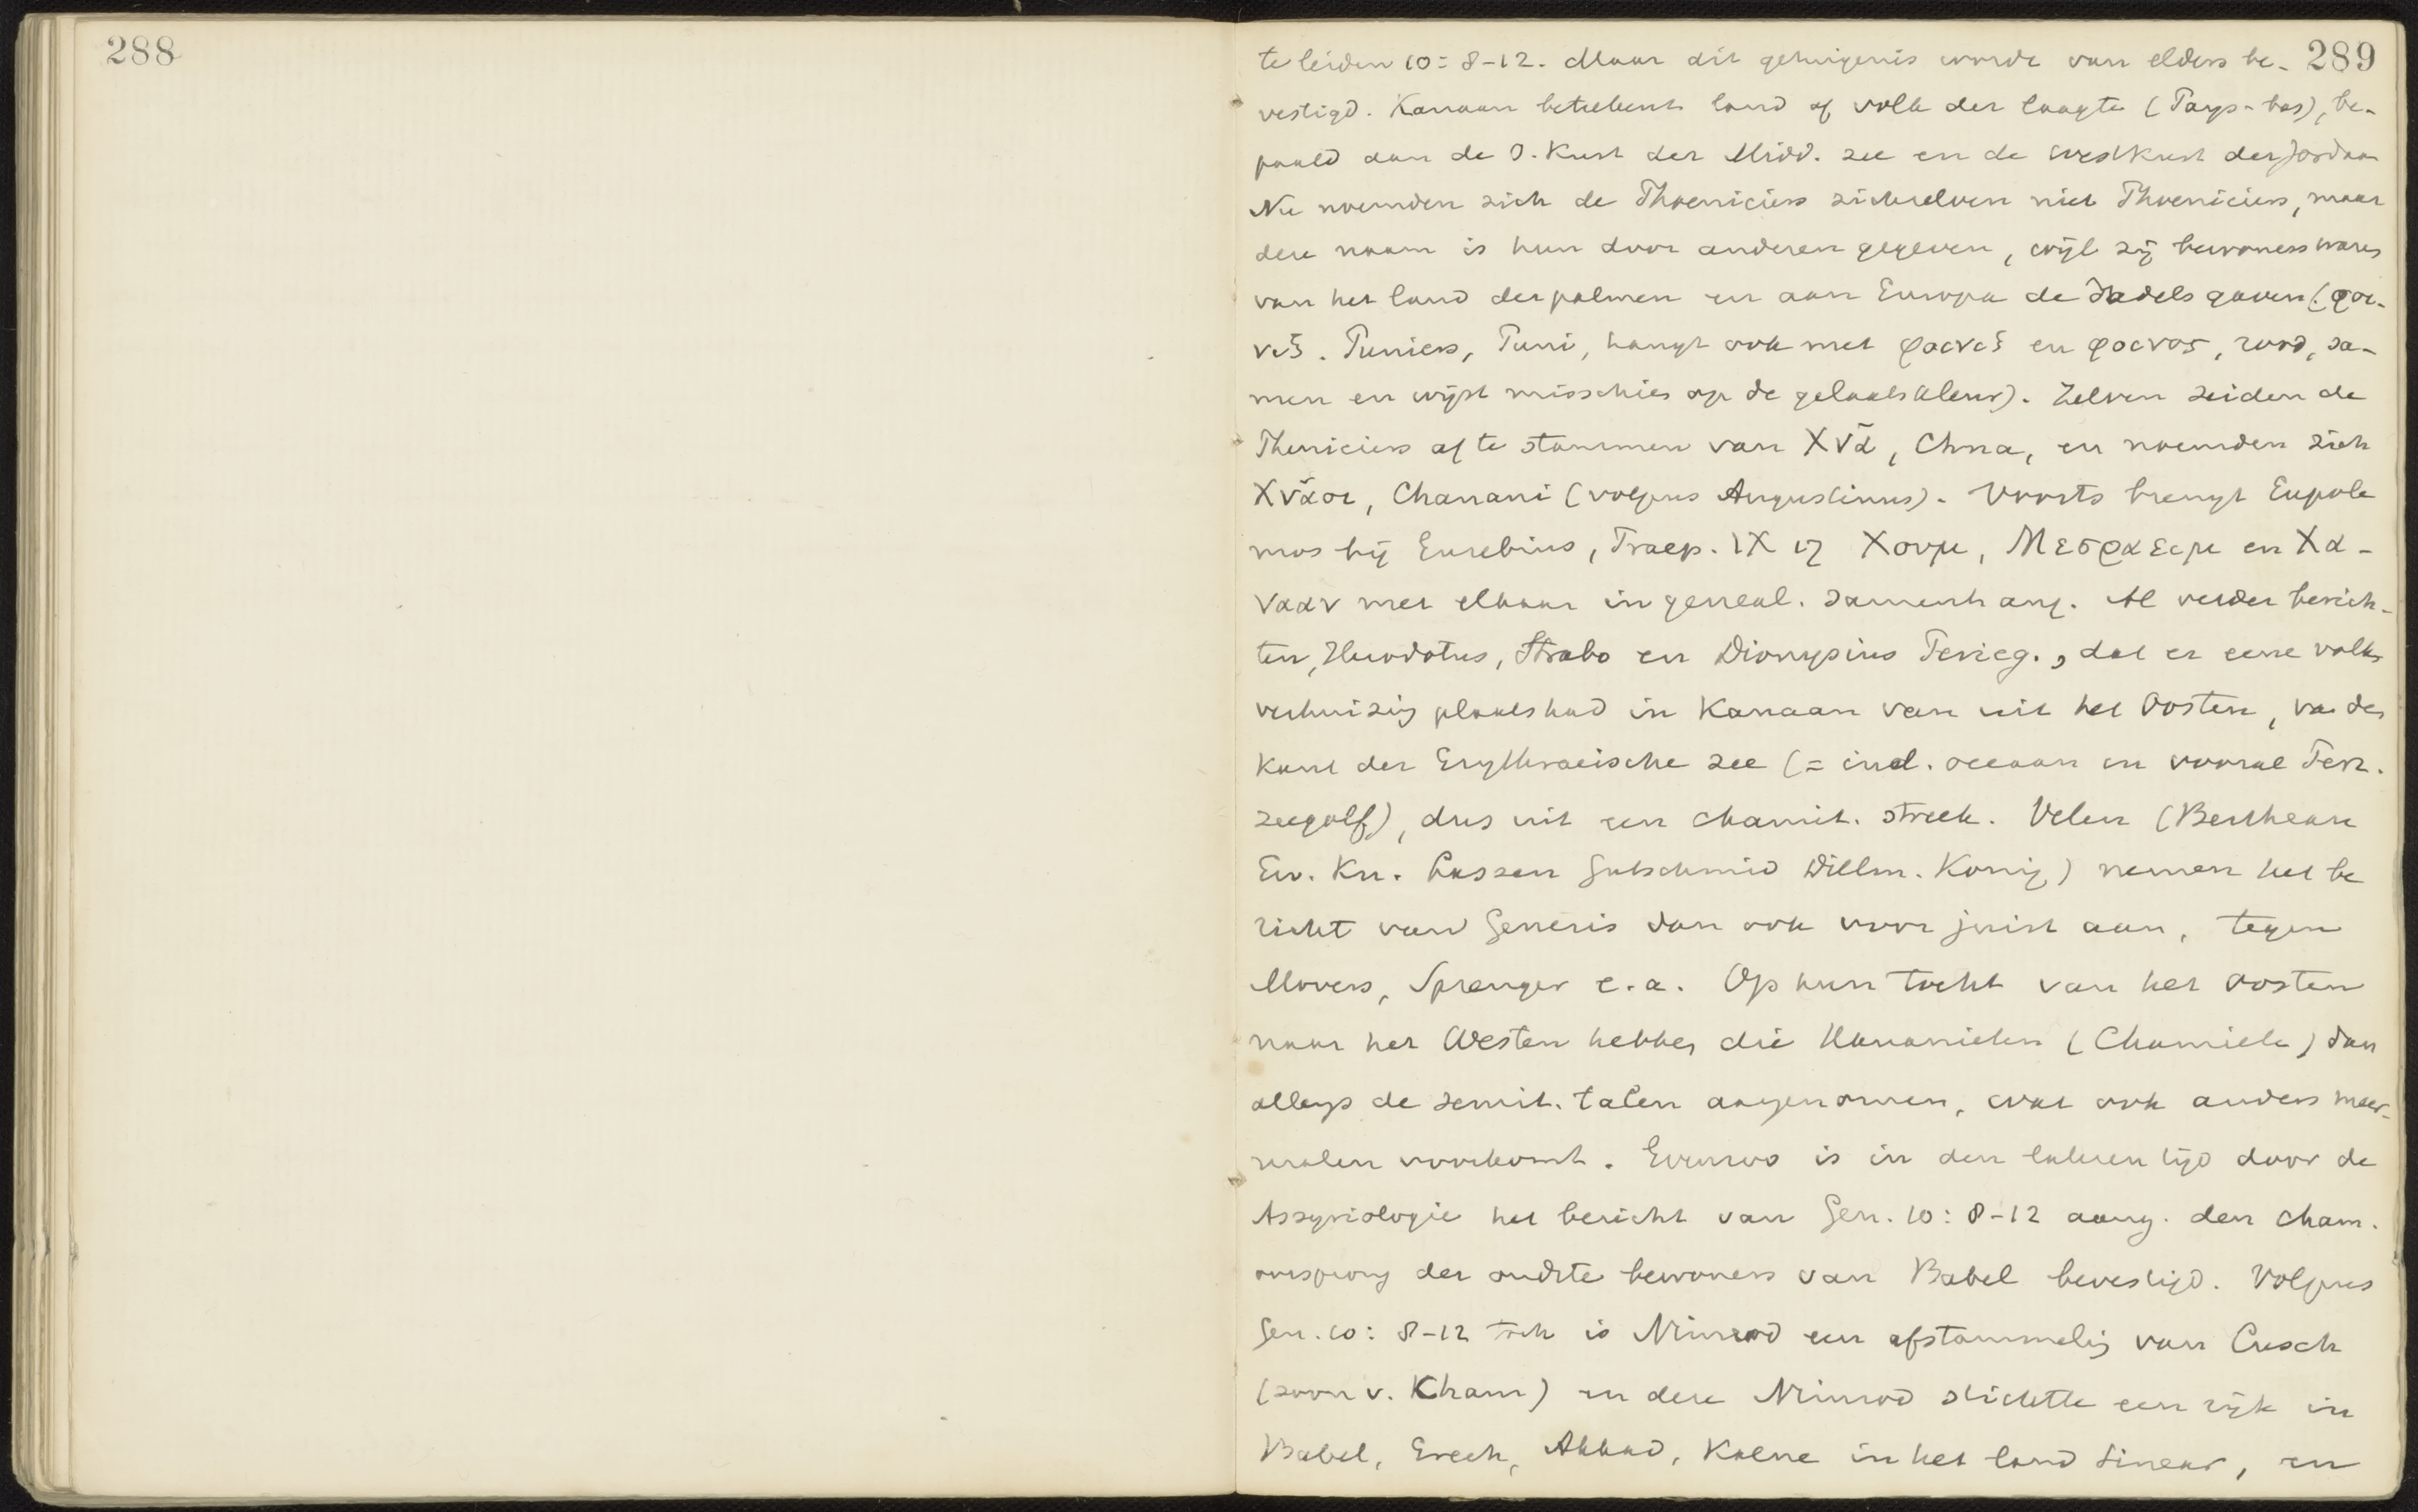 288
289
te leiden 10:8-12. Maar dit getuigenis wordt van elders be-
vestigd. Kanaan beteekent land of volk der laagte (Pays-bas), be-
paald aan de O. Kust der Midd. zee en de westkust der Jordaan
Nu noemden zich de Phoeniciers zichzelven niet Phoeniciers, maar
deze naam is hun door anderen gegeven, wijl zij bewoners waren
van het land der palmen en aan Europa de dadels gaven (φοι-
νιξ. Puniers, Puni, hangt ook met φοινιξ en φοινος, rood, sa-
men en wijst misschien op de gelaatskleur). Zelven zeiden de
Pheniciers af te stammen van Χνᾶ, Chna, en noemden zich
Χνᾶοι, Chanani (volgens Augustinus). Voorts brengt Eupole
mos bij Eusebius, Praep. IX 17 Χουμ, Μεσραειμ en Χα-
νααν met elkaar in geneal. samenhang. Al verder berich-
ten, Herodotus, Strabo en Dionysius Perieg., dat er eene volks
verhuizing plaats had in Kanaan van uit het Oosten, van de
kust der Erythraeische zee (= ind. oceaan en vooral Perz.
zeegolf), dus uit een chamit. streek. Velen (Bertheau
Ew. Kn. Lassen Gutschmid Dillm. König) nemen het be
richt van Genesis dan ook voor juist aan, tegen
Movers, Sprenger e.a. Op hun tocht van het Oosten
naar het Westen hebben die Kanaanieten (Chamiete) dan
allengs de semit. talen aangenomen, wat ook anders meer-
malen voorkomt. Evenzoo is in den lateren tijd door de
Assyriologie het bericht van Gen. 10:8-12 aang. den cham.
oorsprong der oudste bewoners van Babel bevestigd. Volgens
Gen. 10: 8-12 toch is Nimrod een afstammeling van Cusch
(zoon v. Kham) en deze Nimrod stichtte een rijk in
Babel, Erech, Akkad, Kalne in het land Sinear, en